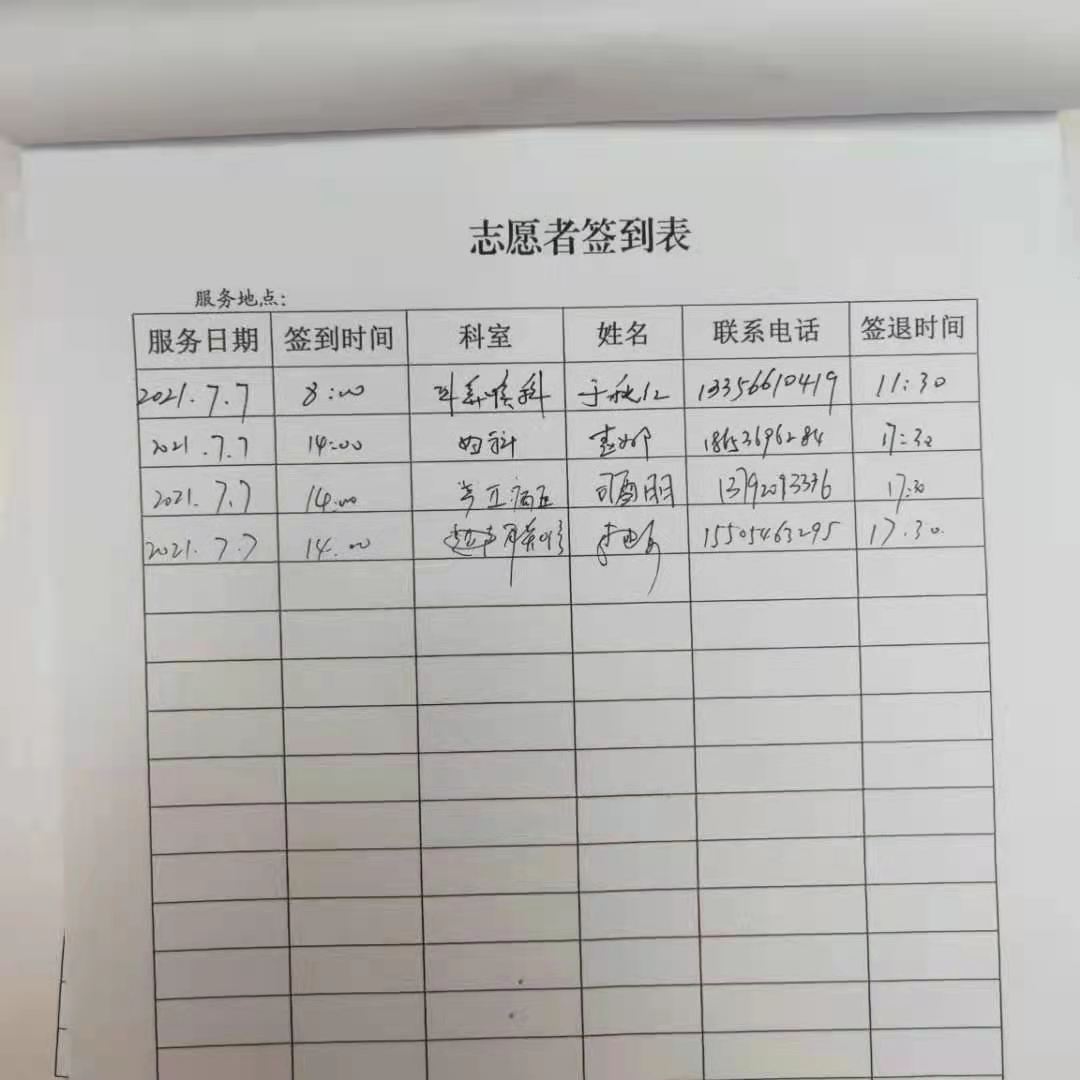 志愿者签到表
服务地点:
服务日期 签到时间 科室 姓名 联系电话 签退时间
2021.7.7 8:00 耳鼻喉科 于秋红 13356610419 11:30
2021.7.7 14:00 妇科 18653696284 17:30
2021.7.7 14:00 13792093336 17:30
2021.7.7 14:00 15505463295 17:30